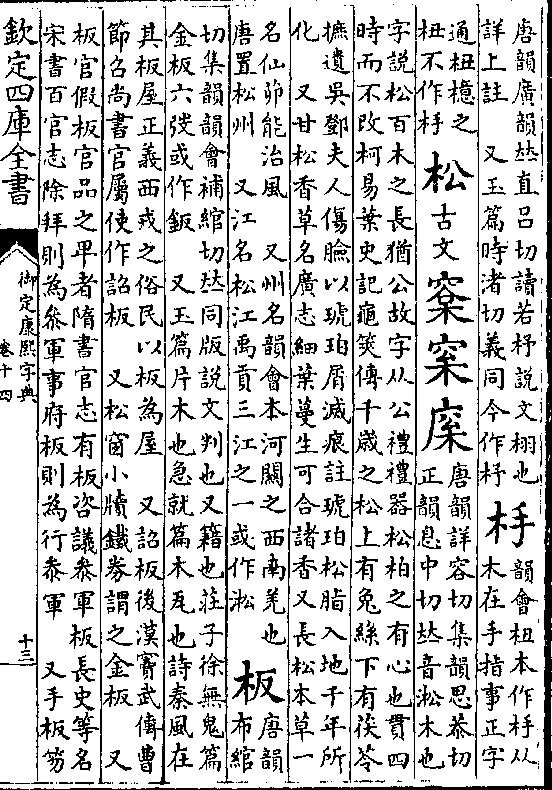 唐韻廣韻𠀤直呂切讀若杼說文栩也
詳上註 又玉篇時渚切義同今作杼
杽
韻會杻本作杽从
木在手指事正字
通杻檍之
杻不作杽
松
古文
唐韻詳容切集韻思恭切
正韻息中切𠀤音淞木也
字說松百木之長猶公故字从公禮禮器松柏之有心也貫四
時而不改柯易葉史記龜筴傳千歲之松上有兔絲下有茯苓
摭遺吳鄧夫人傷臉以琥珀屑滅痕註琥珀松脂入地千年所
化 又甘松香草名廣志細葉蔓生可合諸香又長松本草一
名仙茆能治風 又州名韻會本河關之西南羌也
唐置松州 又江名松江禹貢三江之一或作淞
板
唐韻
布綰
切集韻韻會補綰切𠀤同版說文判也又籍也莊子徐無鬼篇
金板六弢或作鈑 又玉篇片木也急就篇木瓦也詩秦風在
其板屋正義西戎之俗民以板為屋 又詔板後漢竇武傳曹
節召尚書官屬使作詔板 又松窗小牘鐵券謂之金板 又
板官假板官品之卑者隋書官志有板咨議叅軍板長史等名
宋書百官志除拜則為叅軍事府板則為行叅軍 又手板笏
欽定四庫全書
御定康熙字典
卷十四
十三